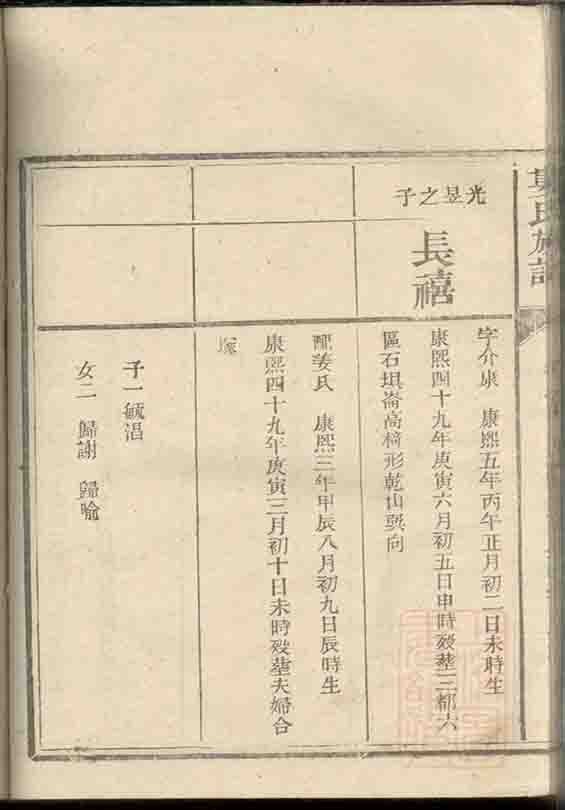 氏族譜
光昱之子
長禧
字介康 康熙五年丙午正月初二日未時生
康熙四十九年庚寅六月初五日申時歿塟三都六
區石垻崙高椅形乾山巽向
配姜氏 康熙三年甲辰八月初九日辰時生
康熙四十九年庚寅三月初十日未時歿塟夫婦合
塚
子一毓淐
女二 歸謝 歸喻